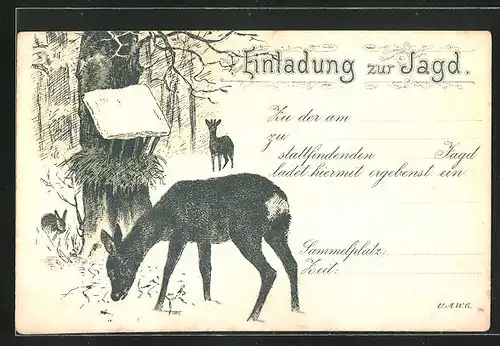 Einladung zur Jagd.
Zu der am
zu
stattfindenden Jagd
ladet hiermit ergebenst ein
Sammelplatz:
Zeit:
U.A.W.G.